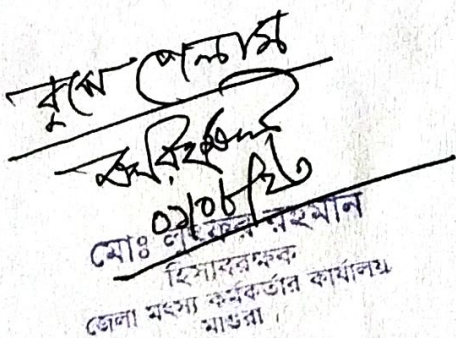 বুঝে পেলাম
০১/০৮/২৩
মোঃ লুৎফর রহমান
হিসাবরক্ষক
জেলা মৎস্য কর্মকর্তার কার্যালয়
মাগুরা।